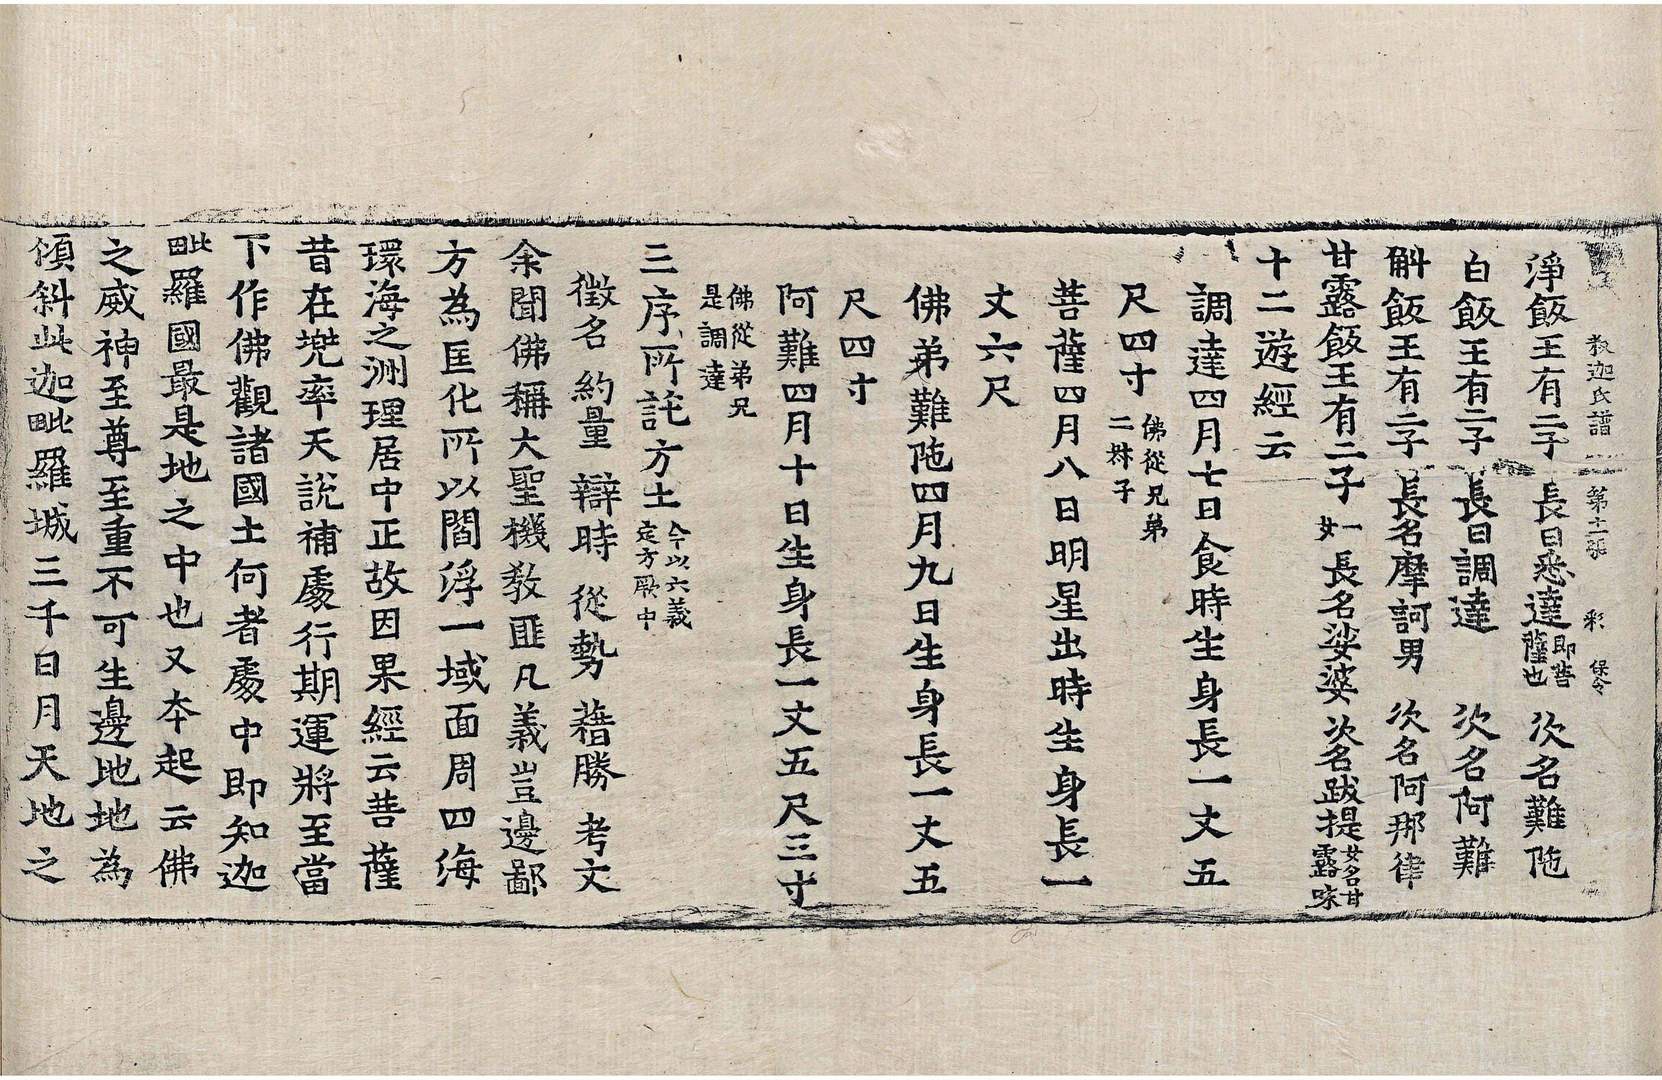 釈迦氏譜 第十二張 彩 保令
淨飯王有二子 長曰悉達即菩薩也 次名難陁
白飯王有二子 長曰調達 次名阿難
斛飯王有二子 長名摩訶男 次名阿那律
甘露飯王有二子一女 長名娑婆 次名跋提女名甘露味
十二遊經云
調達四月七日食時生身長一丈五
尺四寸佛從兄弟二姊子
菩薩四月八日明星出時生身長一
丈六尺
佛弟難陁四月九日生身長一丈五
尺四寸
阿難四月十日生身長一丈五尺三寸
佛從弟兄是調達
三序所託方土今以六義定方厥中
徵名 約量 辯時 從勢 藉勝 考文
余聞佛稱大聖機教匪凡義豈邊鄙
方為匡化所以閻浮一域面周四海
環海之洲理居中正故因果經云菩薩
昔在兠率天說補處行期運將至當
下作佛觀諸國土何者處中即知迦
毗羅國最是地之中也又本起云佛
之威神至尊至重不可生邊地地為
傾斜此迦毗羅城三千日月天地之